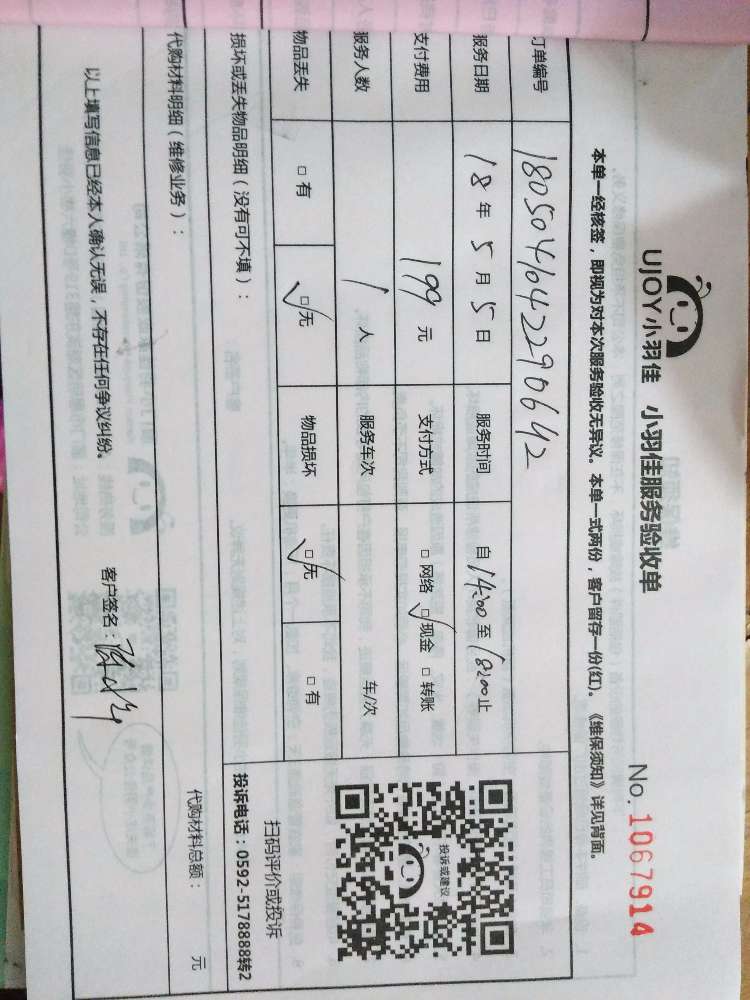 UJOY小羽佳 小羽佳服务验收单
No. 1067914
本单一经核签，即视为对本次服务验收无异议。本单一式两份，客户留存一份(红)。《维保须知》详见背面。
订单编号 1805041042290642
服务日期 18年5月5日 服务时间 自14:00至18:00止
支付费用 199元 支付方式 □网络 ☑现金 □转账
服务人数 1人 服务车次 车/次
物品丢失 □有 ☑无 物品损坏 ☑无 □有
损坏或丢失物品明细（没有可不填）：
投诉或建议
扫码评价或投诉
投诉电话：0592-5178888转2
代购材料明细（维修业务）： 代购材料总额： 元
以上填写信息已经本人确认无误，不存在任何争议纠纷。 客户签名：